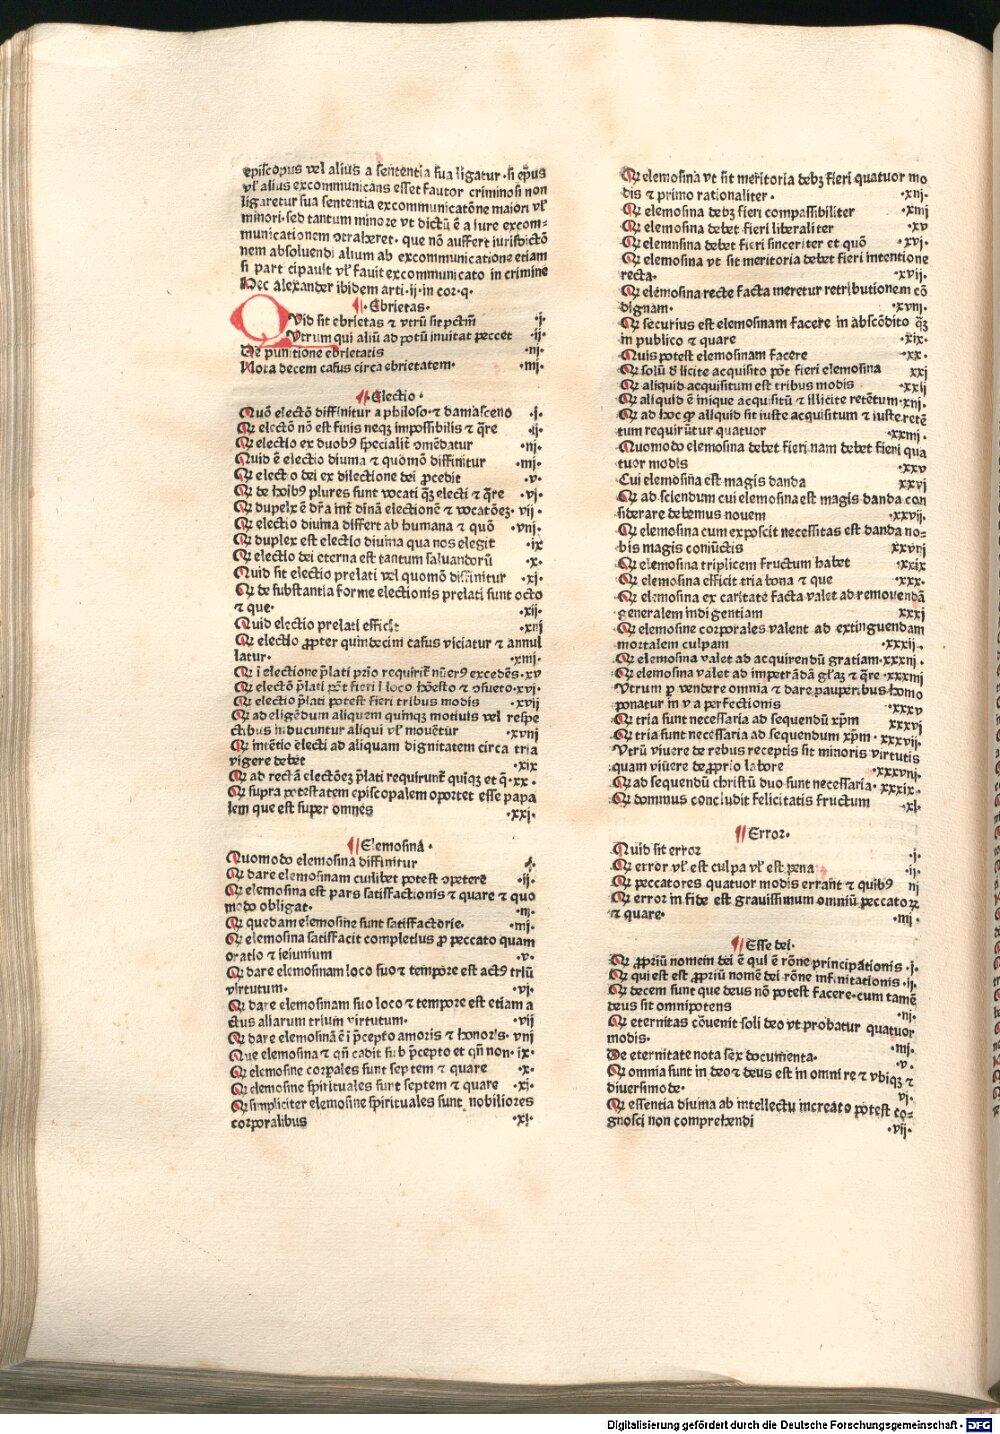 episcopus vel aliús a sententia sua ligatur ·si ep̄us
vl' alius excommunicans esset fautor criminosi non
ligaretur sua sententia excommunicatōne maiori vl'
minori·sed tantum minore vt dictū ē a iure excom-
municationem ɔtraheret· que nō auffert iurisdictō
nem absoluendi alium ab excommunicatione etiam
si part cipauit vl' fauit excommunicato in crimine
Hec alexander ibidem arti·ij·in cor·q·
¶·Ebrietas·
QVid sit ebrietas ⁊ vtrū sit pctm̄ ·j·
Vtrum qui aliū ad potū inuitat peccet ·ij·
De punitione ebrietatis ·iij·
Nota decem casus circa ebrietatem· ·iiij·
¶·Electio·
Quō electō diffinitur a philoso·⁊ damasceno ·j·
Qꝛ electō nō est finis neqꝫ impossibilis ⁊ q̄re ·ij·
Qꝛ electio ex duobꝰ specialit̄ ɔmēdatur ·iij·
Quid ē electio diuina ⁊ quōmō diffinitur ·iiij·
Qꝛ electio dei ex dilectione dei ꝓcedit ·v·
Qꝛ de hoībꝰ plures sunt vocati q̄ꝫ electi ⁊ q̄re ·vj·
Qꝛ dupelx ē dr̄a int̄ dinā electionē ⁊ vocatōeꝫ· vij·
Qꝛ electio diuina differt ab humana ⁊ quō ·viij·
Qꝛ duplex est electio diuina qua nos elegit ·ix
Qꝛ electio dei eterna est tantum saluandorū ·x·
Quid sit electio prelati vel quomō diffinitur ·xj·
Qꝛ de substantia forme electionis prelati sunt octo
⁊ que· ·xij·
Quid electio prelati efficit ·xiij
Qꝛ electio ꝓpter quindecim casus viciatur ⁊ annul
latur· ·xiiij·
Qꝛ i electione p̄lati pr̄io requirit̄ nūerꝰ excedēs·xv
Qꝛ electō p̄lati pōt fieri i loco hōesto ⁊ ɔsueto·xvj·
Qꝛ electio p̄lati potest fieri tribus modis ·xvij
Qꝛ ad eligēdum aliquem quinqꝫ motiuis vel respe
ctibus inducuntur aliqui vl' mouētur ·xviij
Qꝛ intētio electi ad aliquam dignitatem circa tria
vigere debet ·xix
Qꝛ ad rectā electōeꝫ p̄lati requirunt̄ quiqꝫ et q̄·xx·
Qꝛ supra potestatem episcopalem oportet esse papa
lem que est super omnes ·xxj·
¶Elemosina·
Quomodo elemosina diffinitur ·j·
Qꝛ dare elemosinam cuilibet potest ɔpetere ·ij·
Qꝛ elemosina est pars satisfactionis ⁊ quare ⁊ quo
modo obligat· ·iij·
Qꝛ quedam elemosine sunt satisfactorie· ·iiij·
Qꝛ elemosina satisfacit completius ꝓ peccato quam
oratio ⁊ ieiunium ·v·
Qꝛ dare elemosinam loco suo ⁊ tempore est actꝰ triū
virtutum· ·vj·
Qꝛ dare elemosinam suo loco ⁊ tempore est etiam a
ctus aliarum trium virtutum· ·vij
Qꝛ dare elemosinā ē i p̄cepto amoris ⁊ honoris· viij
Que elemosina ⁊ qn̄ cadit sub p̄cepto et qn̄ non· ix·
Qꝛ elemosine corpales sunt septem ⁊ quare ·x·
Qꝛ elemosine spirituales sunt septem ⁊ quare ·xj·
Qꝛ simpliciter elemosine spirituales sunt nobiliores
corporalibus ·xij·
Qꝛ elemosina vt sit meritoria debꝫ fieri quatuor mo
dis ⁊ primo rationaliter· ·xiij·
Qꝛ elemosina debꝫ fieri compassibiliter ·xiiij
Qꝛ elemosina debet fieri liberaliter ·xv
Qꝛ elemnsina debet fieri sinceriter et quō ·xvj·
Qꝛ elemosina vt sit meritoria debet fieri intentione
recta· ·xvij·
Qꝛ elemosina recte facta meretur retributionem cō
dignam· ·xviij·
Qꝛ securius est elemosinam facere in abscōdito q̄ꝫ
in publico ⁊ quare ·xix·
Quis potest elemosinam facere ·xx·
Qꝛ solū d' licite acquisito pōt fieri elemosina xxj
Qꝛ aliquid acquisitum est tribus modis ·xxij
Qꝛ aliquid ē inique acquisitū ⁊ illicite retētum·xxiij·
Qꝛ ad hoc ꝙ aliquid sit iuste acquisitum ⁊ iuste retē
tum requirūtur quatuor ·xxiiij·
Quomodo elemosina debet fieri nam debet fieri qua
tuor modis ·xxv
Cui elemosina est magis danda xxvj
Qꝛ ad sciendum cui elemosina est magis danda con
siderare debemus nouem ·xxvij·
Qꝛ elemosina cum exposcit necessitas est danda no-
bis magis coniūctis xxviij
Qꝛ elemosina triplicem fructum habet ·xxix
Qꝛ elemosina efficit tria bona ⁊ que ·xxx·
Qꝛ elemosina ex caritate facta valet ad remouendā
generalem indigentiam xxxj
Qꝛ elemosine corporales valent ad extinguendam
mortalem culpam ·xxxij·
Qꝛ elemosina valet ad acquirendū gratiam·xxxiij·
Qꝛ elemosina valet ad impetrādā gl'aꝫ ⁊ q̄re ·xxxiiij
Vtrum ꝓ vendere omnia ⁊ dare pauperibus homo
ponatur in v a perfectionis ·xxxv
Qꝛ tria sunt necessaria ad sequendū xp̄m xxxvj
Qꝛ tria sunt necessaria ad sequendum xp̄m· xxxvij·
Vtrū viuere de rebus receptis sit minoris virtutis
quam viuere de ꝓprio labore ·xxxviij·
Qꝛ ad sequendū christū duo sunt necessaria· xxxix·
Qꝛ dommus concludit felicitatis fructum ·xl·
¶Error·
Quid sit error ·j·
Qꝛ error vl' est culpa vl' est pena ·ij·
Qꝛ peccatores quatuor modis errant ⁊ quibꝰ iij
Qꝛ error in fide est grauissimum omniū peccatoꝝ
⁊ quare· ·iiij·
¶Esse dei·
Qꝛ ꝓpriū nomein dei ē qui ē rōne principationis ·j·
Qꝛ qui est est ꝓpriū nomē dei rōne infinitationis ·ij·
Qꝛ decem sunt que deus nō potest facere·cum tamē
deus sit omnipotens ·iij·
Qꝛ eternitas cōuenit soli deo vt probatur quatuor
modis· ·iiij·
De eternitate nota sex documenta· ·v·
Qꝛ omnia sunt in deo ⁊ deus est in omni re ⁊ vbiqꝫ ⁊
diuersimode· vj·
Qꝛ essentia diuina ab intellectu increato potest co-
gnosci non comprehendi ·vij·
Digitalisierung gefördert durch die Deutsche Forschungsgemeinschaft - DFG